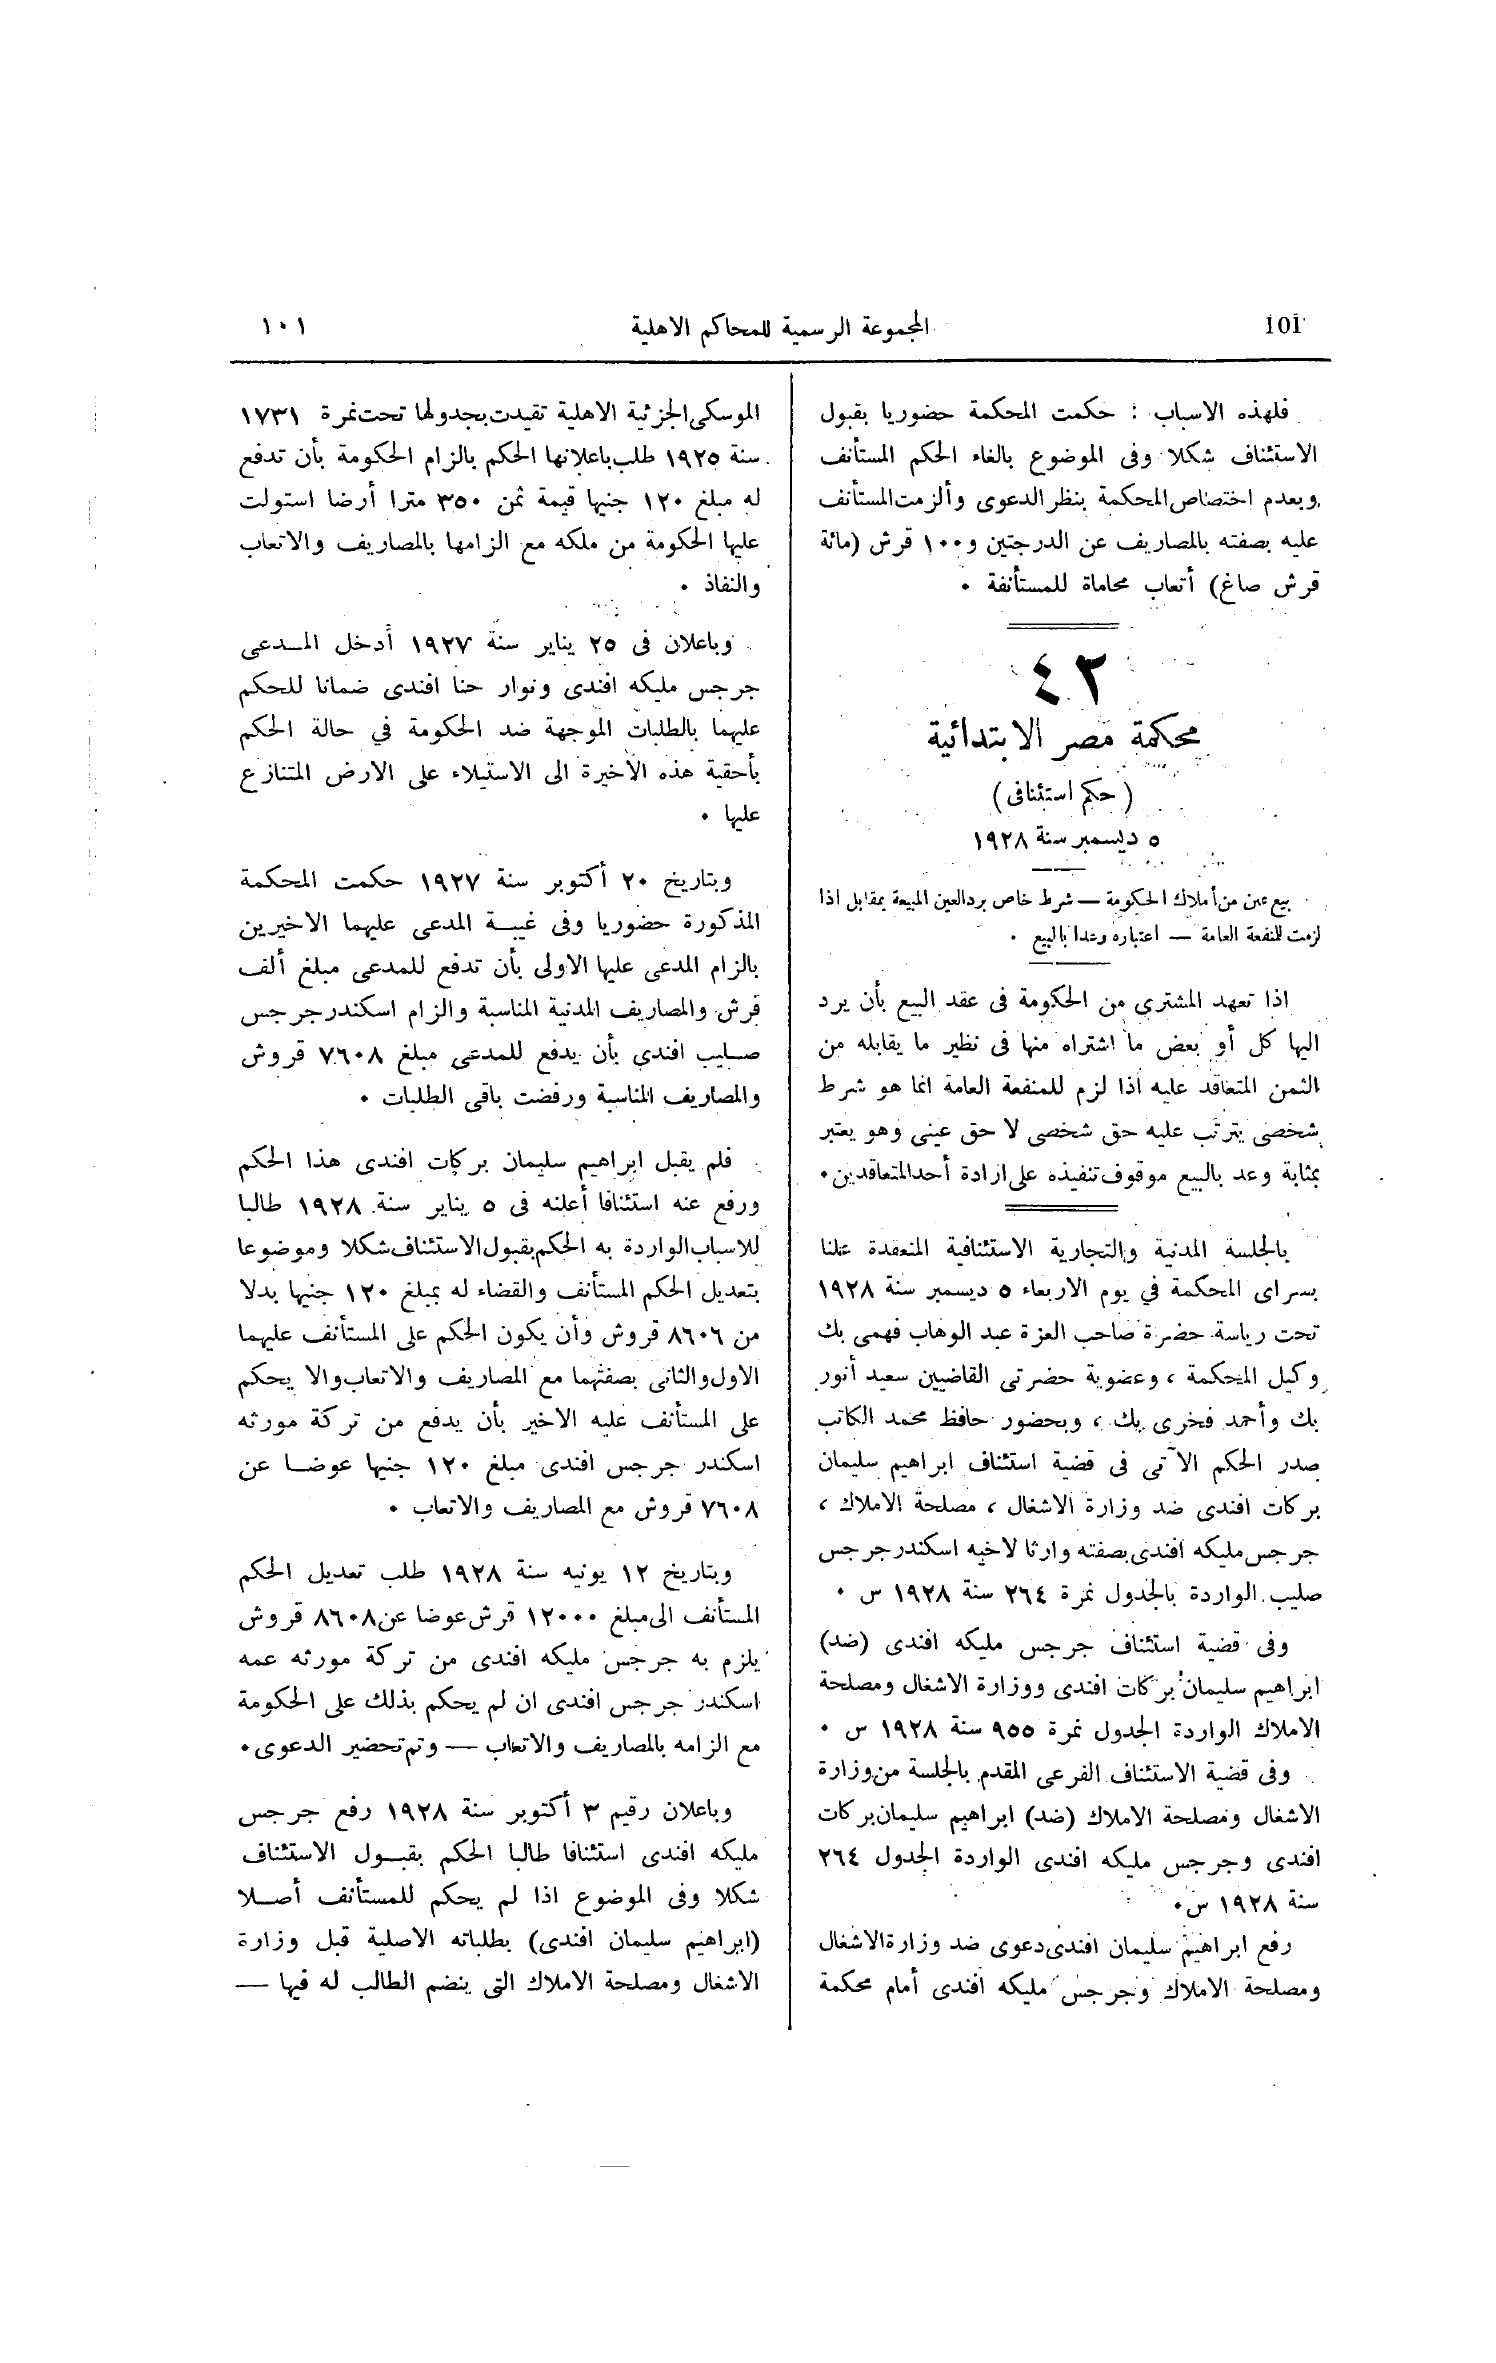 101 المجموعة الرسمية للمحاكم الاهلية ١٠١
فلهذه الاسباب : حكمت المحكمة حضوريا بقبول
الاستئناف شكلا وفى الموضوع بالغاء الحكم المستأنف
وبعدم اختصاص المحكمة بنظر الدعوى وألزمت المستأنف
عليه بصفته بالمصاريف عن الدرجتين و١٠٠ قرش (مائة
قرش صاغ) أتعاب محاماة للمستأنفة .
٤٢
محكمة مصر الابتدائية
(حكم استئنافى)
٥ ديسمبر سنة ١٩٢٨
بيع عين من أملاك الحكومة — شرط خاص برد العين المبيعة بمقابل اذا
لزمت للمنفعة العامة — اعتباره وعدا بالبيع .
اذا تعهد المشترى من الحكومة فى عقد البيع بأن يرد
اليها كل أو بعض ما اشتراه منها فى نظير ما يقابله من
الثمن المتعاقد عليه اذا لزم للمنفعة العامة انما هو شرط
شخصى يترتب عليه حق شخصى لا حق عينى وهو يعتبر
بمثابة وعد بالبيع موقوف تنفيذه على ارادة أحد المتعاقدين .
بالجلسة المدنية والتجارية الاستئنافية المنعقدة علنا
بسراى المحكمة في يوم الاربعاء ٥ ديسمبر سنة ١٩٢٨
تحت رياسة حضرة صاحب العزة عبد الوهاب فهمى بك
وكيل المحكمة ، وعضوية حضرتى القاضيين سعيد أنور
بك وأحمد فخرى بك ، وبحضور حافظ محمد الكاتب
صدر الحكم الآتى فى قضية استئناف ابراهيم سليمان
بركات افندى ضد وزارة الاشغال ، مصلحة الاملاك ،
جرجس مليكه افندى بصفته وارثا لاخيه اسكندر جرجس
صليب الواردة بالجدول نمرة ٢٦٤ سنة ١٩٢٨ س .
وفى قضية استئناف جرجس مليكه افندى (ضد)
ابراهيم سليمان بركات افندى ووزارة الاشغال ومصلحة
الاملاك الواردة الجدول نمرة ٩٥٥ سنة ١٩٢٨ س .
وفى قضية الاستئناف الفرعى المقدم بالجلسة من وزارة
الاشغال ومصلحة الاملاك (ضد) ابراهيم سليمان بركات
افندى وجرجس مليكه افندى الواردة الجدول ٢٦٤
سنة ١٩٢٨ س .
رفع ابراهيم سليمان افندى دعوى ضد وزارة الاشغال
ومصلحة الاملاك وجرجس مليكه افندى أمام محكمة
الموسكى الجزئية الاهلية تقيدت بجدولها تحت نمرة ١٧٣١
سنة ١٩٢٥ طلب باعلانها الحكم بالزام الحكومة بأن تدفع
له مبلغ ١٢٠ جنيها قيمة ثمن ٣٥٠ مترا أرضا استولت
عليها الحكومة من ملكه مع الزامها بالمصاريف والاتعاب
والنفاذ .
وباعلان فى ٢٥ يناير سنة ١٩٢٧ أدخل المدعى
جرجس مليكه افندى ونوار حنا افندى ضمانا للحكم
عليهما بالطلبات الموجهة ضد الحكومة في حالة الحكم
بأحقية هذه الأخيرة الى الاستيلاء على الارض المتنازع
عليها .
وبتاريخ ٢٠ أكتوبر سنة ١٩٢٧ حكمت المحكمة
المذكورة حضوريا وفى غيبة المدعى عليهما الاخيرين
بالزام المدعى عليها الاولى بأن تدفع للمدعى مبلغ ألف
قرش والمصاريف المدنية المناسبة والزام اسكندر جرجس
صليب افندى بأن يدفع للمدعى مبلغ ٧٦٠٨ قروش
والمصاريف المناسبة ورفضت باقى الطلبات .
فلم يقبل ابراهيم سليمان بركات افندى هذا الحكم
ورفع عنه استئنافا أعلنه فى ٥ يناير سنة ١٩٢٨ طالبا
للاسباب الواردة به الحكم بقبول الاستئناف شكلا وموضوعا
بتعديل الحكم المستأنف والقضاء له بمبلغ ١٢٠ جنيها بدلا
من ٨٦٠٦ قروش وأن يكون الحكم على المستأنف عليهما
الاول والثانى بصفتهما مع المصاريف والاتعاب والا يحكم
على المستأنف عليه الاخير بأن يدفع من تركة مورثه
اسكندر جرجس افندى مبلغ ١٢٠ جنيها عوضا عن
٧٦٠٨ قروش مع المصاريف والاتعاب .
وبتاريخ ١٢ يونيه سنة ١٩٢٨ طلب تعديل الحكم
المستأنف الى مبلغ ١٢٠٠٠ قرش عوضا عن ٨٦٠٨ قروش
يلزم به جرجس مليكه افندى من تركة مورثه عمه
اسكندر جرجس افندى ان لم يحكم بذلك على الحكومة
مع الزامه بالمصاريف والاتعاب — وتم تحضير الدعوى .
وباعلان رقيم ٣ أكتوبر سنة ١٩٢٨ رفع جرجس
مليكه افندى استئنافا طالبا الحكم بقبول الاستئناف
شكلا وفى الموضوع اذا لم يحكم للمستأنف أصلا
(ابراهيم سليمان افندى) بطلباته الاصلية قبل وزارة
الاشغال ومصلحة الاملاك التى ينضم الطالب له فيها —